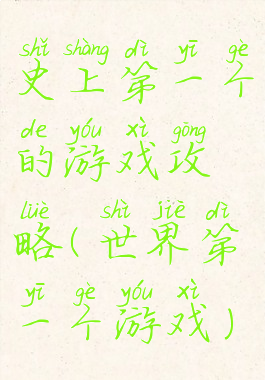 shǐ shàng dì yī gè
史上第一个
de yóu xì gōng
的游戏攻
lüè shì jiè dì
略(世界第
yī gè yóu xì
一个游戏)